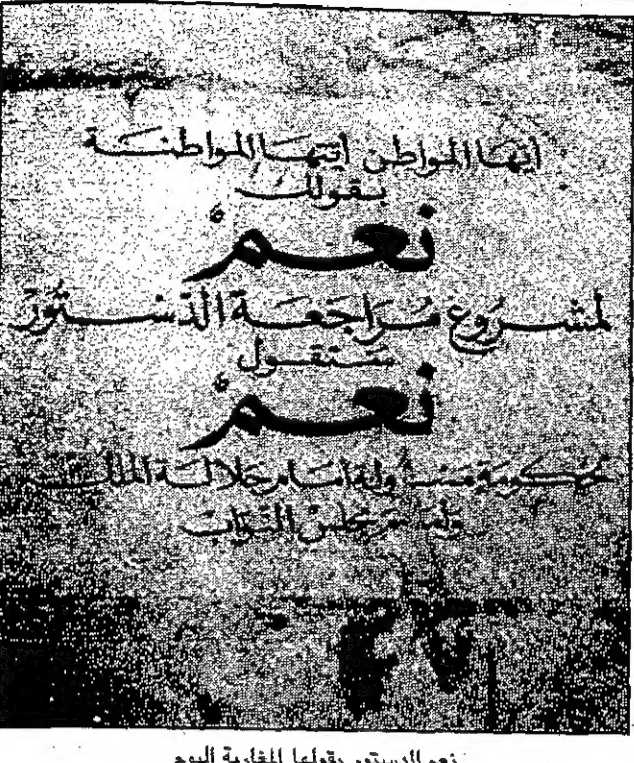 أيها المواطن أيتها المواطنة
بقولك
نعم
لمشروع مراجعة الدستور
ستقول
نعم
لحكومة مسؤولة أمام جلالة الملك
وأمام مجلس النواب
نعم للدستور يقولها المغاربة اليوم